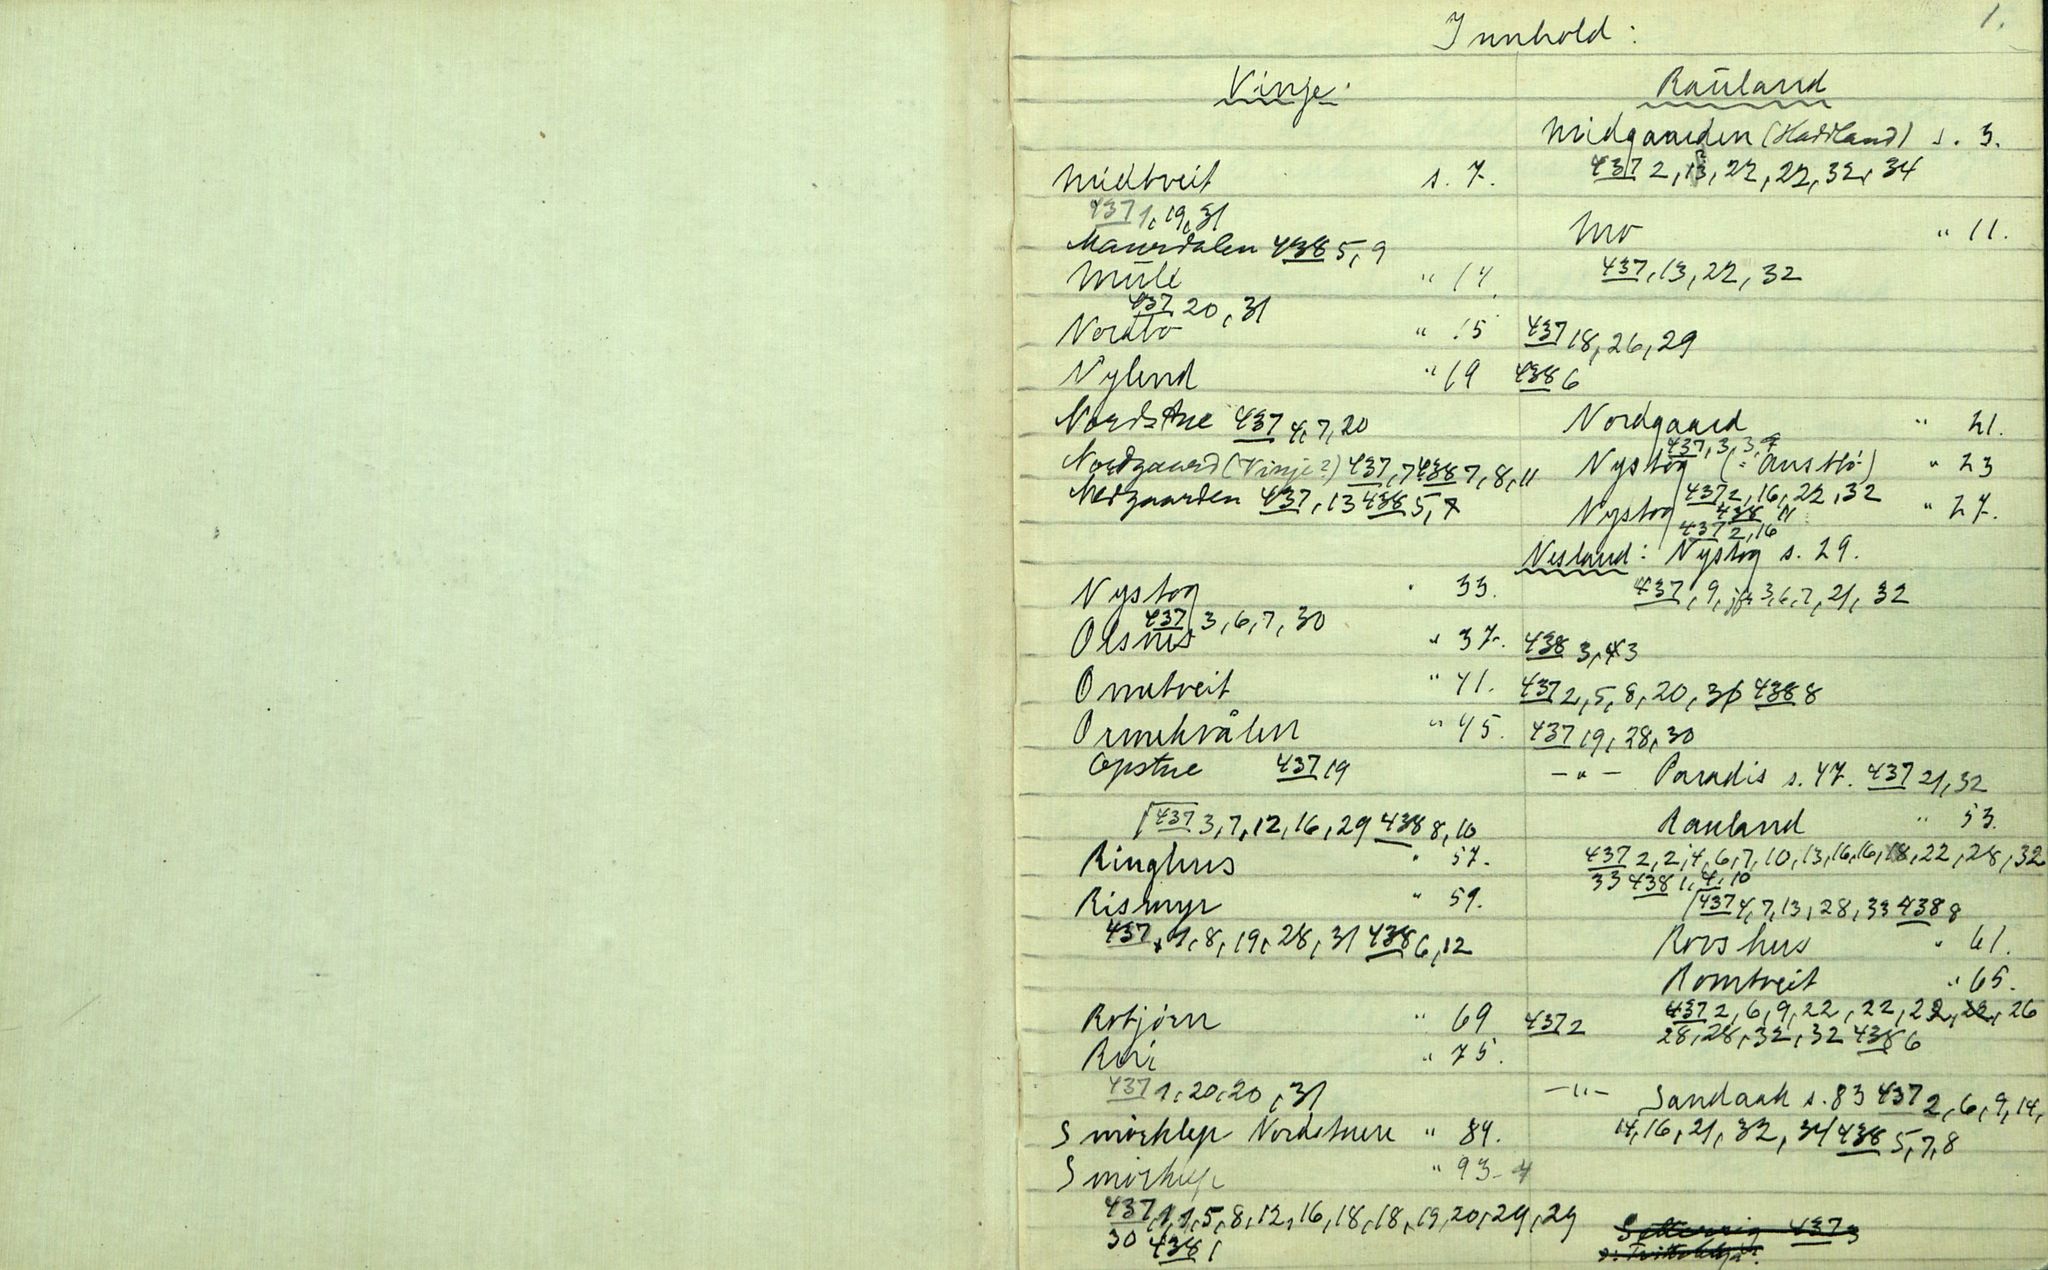 1.
Innhold:
Vinje:
Midtveit s. 7.
437 1, 19, 31
Maurdalen 438 5, 9
Mule " 14.
437 20, 31
Nordbö " 15 437 18, 26, 29
Nylend " 19 438 6
Nordstue 437 4, 7, 20
Nordgaard (Vinje?) 437, 7 438 7, 8, 11
Nedgaarden 437, 13 438 5, 7
Nystog " 33.
437 3, 6, 7, 30
Olsnes " 37. 438 3, 43
Omtveit " 41. 437 2, 5, 8, 20, 30 438 8
Ormekvålen " 45. 437 19, 28, 30
Opstue 437 19
437 3, 7, 12, 16, 29 438 8, 10
Ringhus " 57.
Rismyr " 59.
437 1, 8, 19, 28, 31 438 6, 12
Rotjörn " 69 437 2
Rui " 75.
437 1, 20, 20, 31
Smörklep Nordstuen " 89.
Smörklep " 93-4
437, 1, 1, 5, 8, 12, 16, 18, 18, 19, 20, 29, 29
30 438 1
Rauland
Midgaarden (Haddland) s. 3.
437 2, 13, 22, 22, 32, 34
Mo " 11.
437, 13, 22, 32
Nordgaard " 21.
437, 3, 3,
Nystog " 23
437 2, 16, 22, 32
438 11
Nystog " 27.
437 2, 16
Nesland: Nystog s. 29.
437, 9, jfr 3, 6, 7, 21, 32
—"— Paradis s. 47. 437 21, 32
Rauland " 53.
437 2, 2, 4, 6, 7, 10, 13, 16, 16, 18, 22, 28, 32
33 438 1, 4, 10
437 4, 7, 13, 28, 33 438 8
Roöshus " 61.
Romtveit " 65.
437 2, 6, 9, 22, 22, 22, 22, 26
28, 28, 32, 32 438 6
—"— Sandaak s. 83 437 2, 6, 9, 14,
14, 16, 21, 32, 34 438 5, 7, 8
437 3